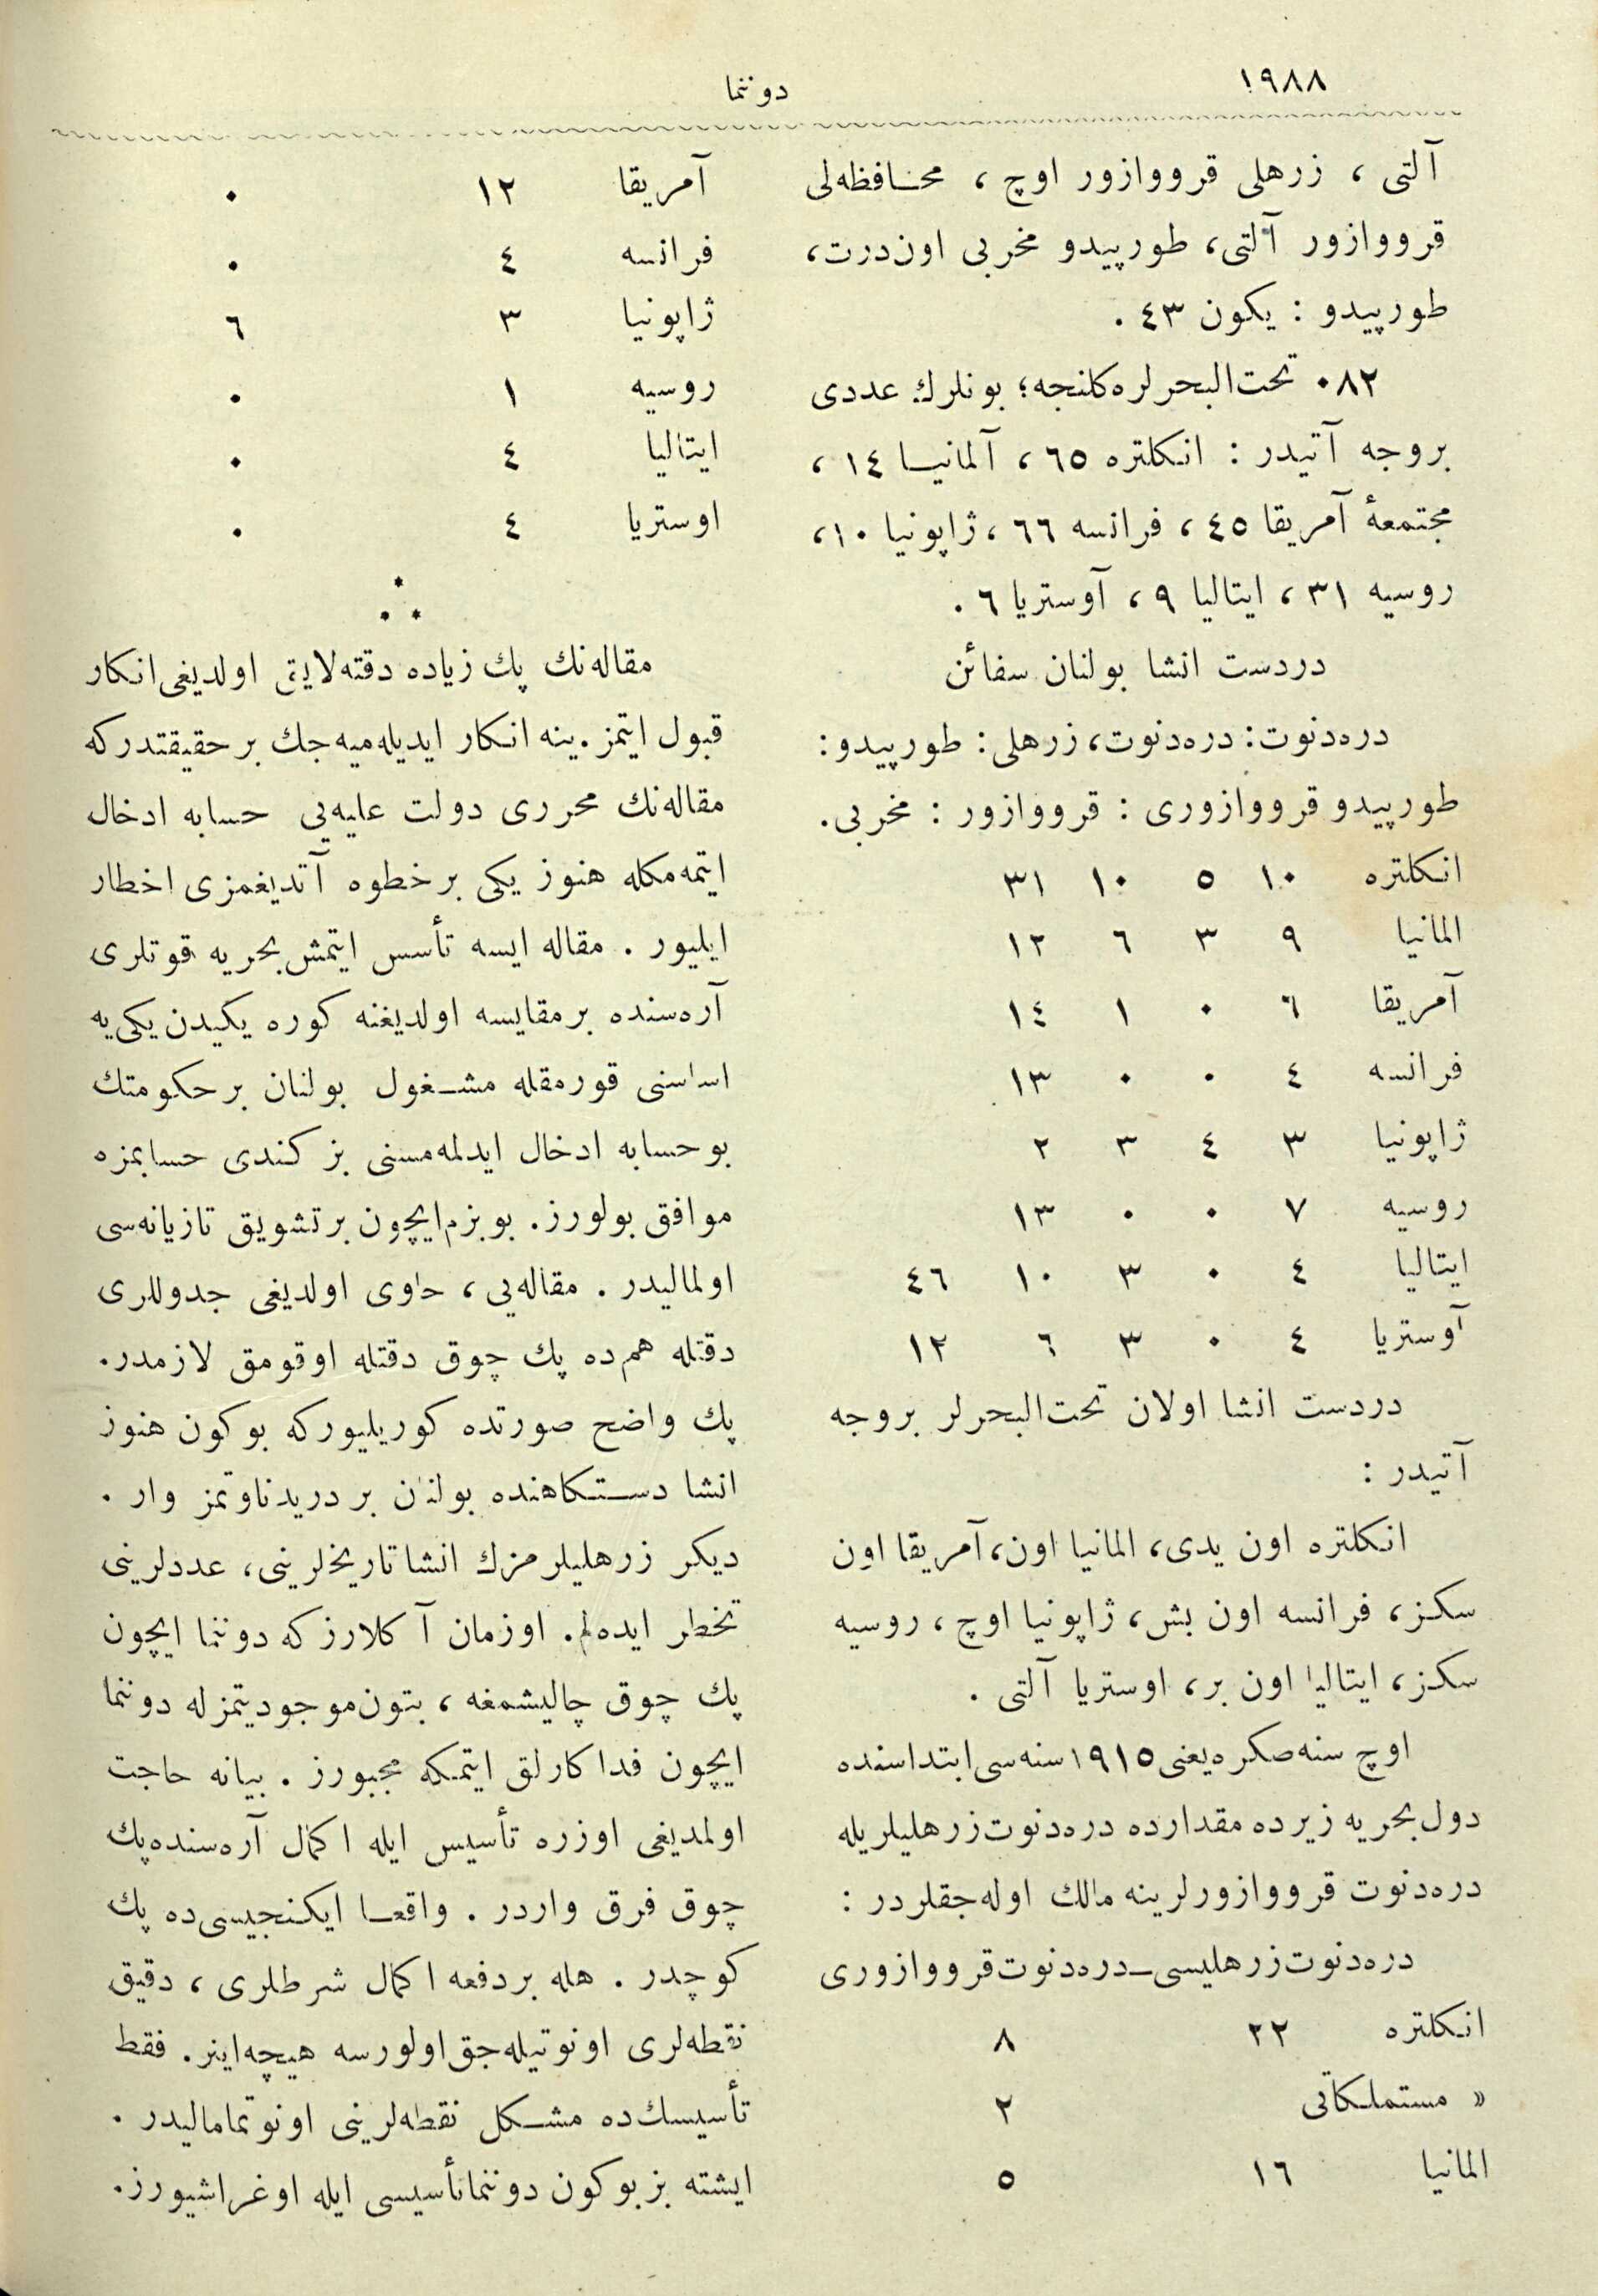 ١٩٨٨
دوننما
آلتی ، زرهلی قرووازور اوچ ، محافظه‌لی
قرووازور آلتی، طورپیدو مخربی اون‌درت،
طورپیدو : یكون ٤٣ .
٠٨٢ تحت‌البحرلره كلنجه؛ بونلرك عددی
بروجه آتیدر : انكلتره ٦٥ ، آلمانیا ١٤ ،
مجتمعهٔ آمریقا ٤٥ ، فرانسه ٦٦ ، ژاپونیا ١٠،
روسیه ٣١ ، ایتالیا ٩ ، آوستریا ٦ .
دردست انشا بولنان سفائن
دره‌دنوت: دره‌دنوت، زرهلی: طورپیدو:
طورپیدو قرووازوری : قرووازور : مخربی.
انكلتره ١٠ ٥ ١٠ ٣١
المانیا ٩ ٣ ٦ ١٢
آمریقا ٦ ٠ ١ ١٤
فرانسه ٤ ٠ ٠ ١٣
ژاپونیا ٣ ٤ ٣ ٢
روسیه ٧ ٠ ٠ ١٣
ایتالیا ٤ ٠ ٣ ١٠ ٤٦
آوستریا ٤ ٠ ٣ ٦ ١٢
دردست انشا اولان تحت‌البحرلر بروجه
آتیدر :
انكلتره اون یدی، المانیا اون، آمریقا اون
سكز، فرانسه اون بش، ژاپونیا اوچ ، روسیه
سكز، ایتالیا اون بر، اوستریا آلتی .
اوچ سنه صكره یعنی ١٩١٥ سنه‌سی ابتداسنده
دول بحریه زیرده مقدارده دره‌دنوت زرهلیلریله
دره‌دنوت قرووازورلرینه مالك اوله‌جقلردر :
دره‌دنوت زرهلیسی ــ دره‌دنوت قرووازوری
انكلتره ٢٢ ٨
« مستملكاتی ٢
المانیا ١٦ ٥
آمریقا ١٢ ٠
فرانسه ٤ ٠
ژاپونیا ٣ ٦
روسیه ١ ٠
ایتالیا ٤ ٠
اوستریا ٤ ٠
مقاله‌نك پك زیاده دقته لایق اولدیغی انكار
قبول ایتمز. ینه انكار ایدیله‌میه‌جك بر حقیقتدركه
مقاله‌نك محرری دولت علیه‌یی حسابه ادخال
ایتمه‌مكله هنوز یكی بر خطوه آتدیغمزی اخطار
ایلیور . مقاله ایسه تأسس ایتمش بحریه قوتلری
آره‌سنده بر مقایسه اولدیغنه كوره یكیدن یكی‌یه
اساسنی قورمقله مشغول بولنان بر حكومتك
بو حسابه ادخال ایدلمه‌مسنی بز كندی حسابمزه
موافق بولورز. بو بزم ایچون بر تشویق تازیانه‌سی
اولمالیدر . مقاله‌یی ، حاوی اولدیغی جدوللری
دقتله هم‌ده پك چوق دقتله اوقومق لازمدر.
پك واضح صورتده كوریلیوركه بوكون هنوز
انشا دستكاهنده بولنان بر دریدناوتمز وار .
دیكر زرهلیلرمزك انشا تاریخلرینی، عددلرینی
تخطر ایده‌لم. اوزمان آكلارزكه دوننما ایچون
پك چوق چالیشمغه ، بتون موجودیتمزله دوننما
ایچون فداكارلق ایتمكه مجبورز . بیانه حاجت
اولمدیغی اوزره تأسیس ایله اكمال آره‌سنده پك
چوق فرق واردر . واقعا ایكنجیسی‌ده پك
كوچدر . هله بر دفعه اكمال شرطلری ، دقیق
نقطه‌لری اونوتیله‌جق اولورسه هیچه اینر. فقط
تأسیسك‌ده مشكل نقطه‌لرینی اونوتمامالیدر .
ایشته بز بوكون دوننما تأسیسی ایله اوغراشیورز.